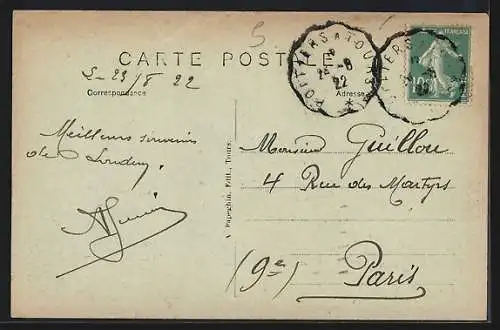 5
CARTE POSTALE
POITIERS A TOURS
24 -8
22
L- 23/8 22
Correspondance
Adresse
Meilleurs souvenirs
de Loudun.
A. Papeghin, Edit., Tours.
Monsieur Guillou
4 Rue des Martyrs
(9e)
Paris